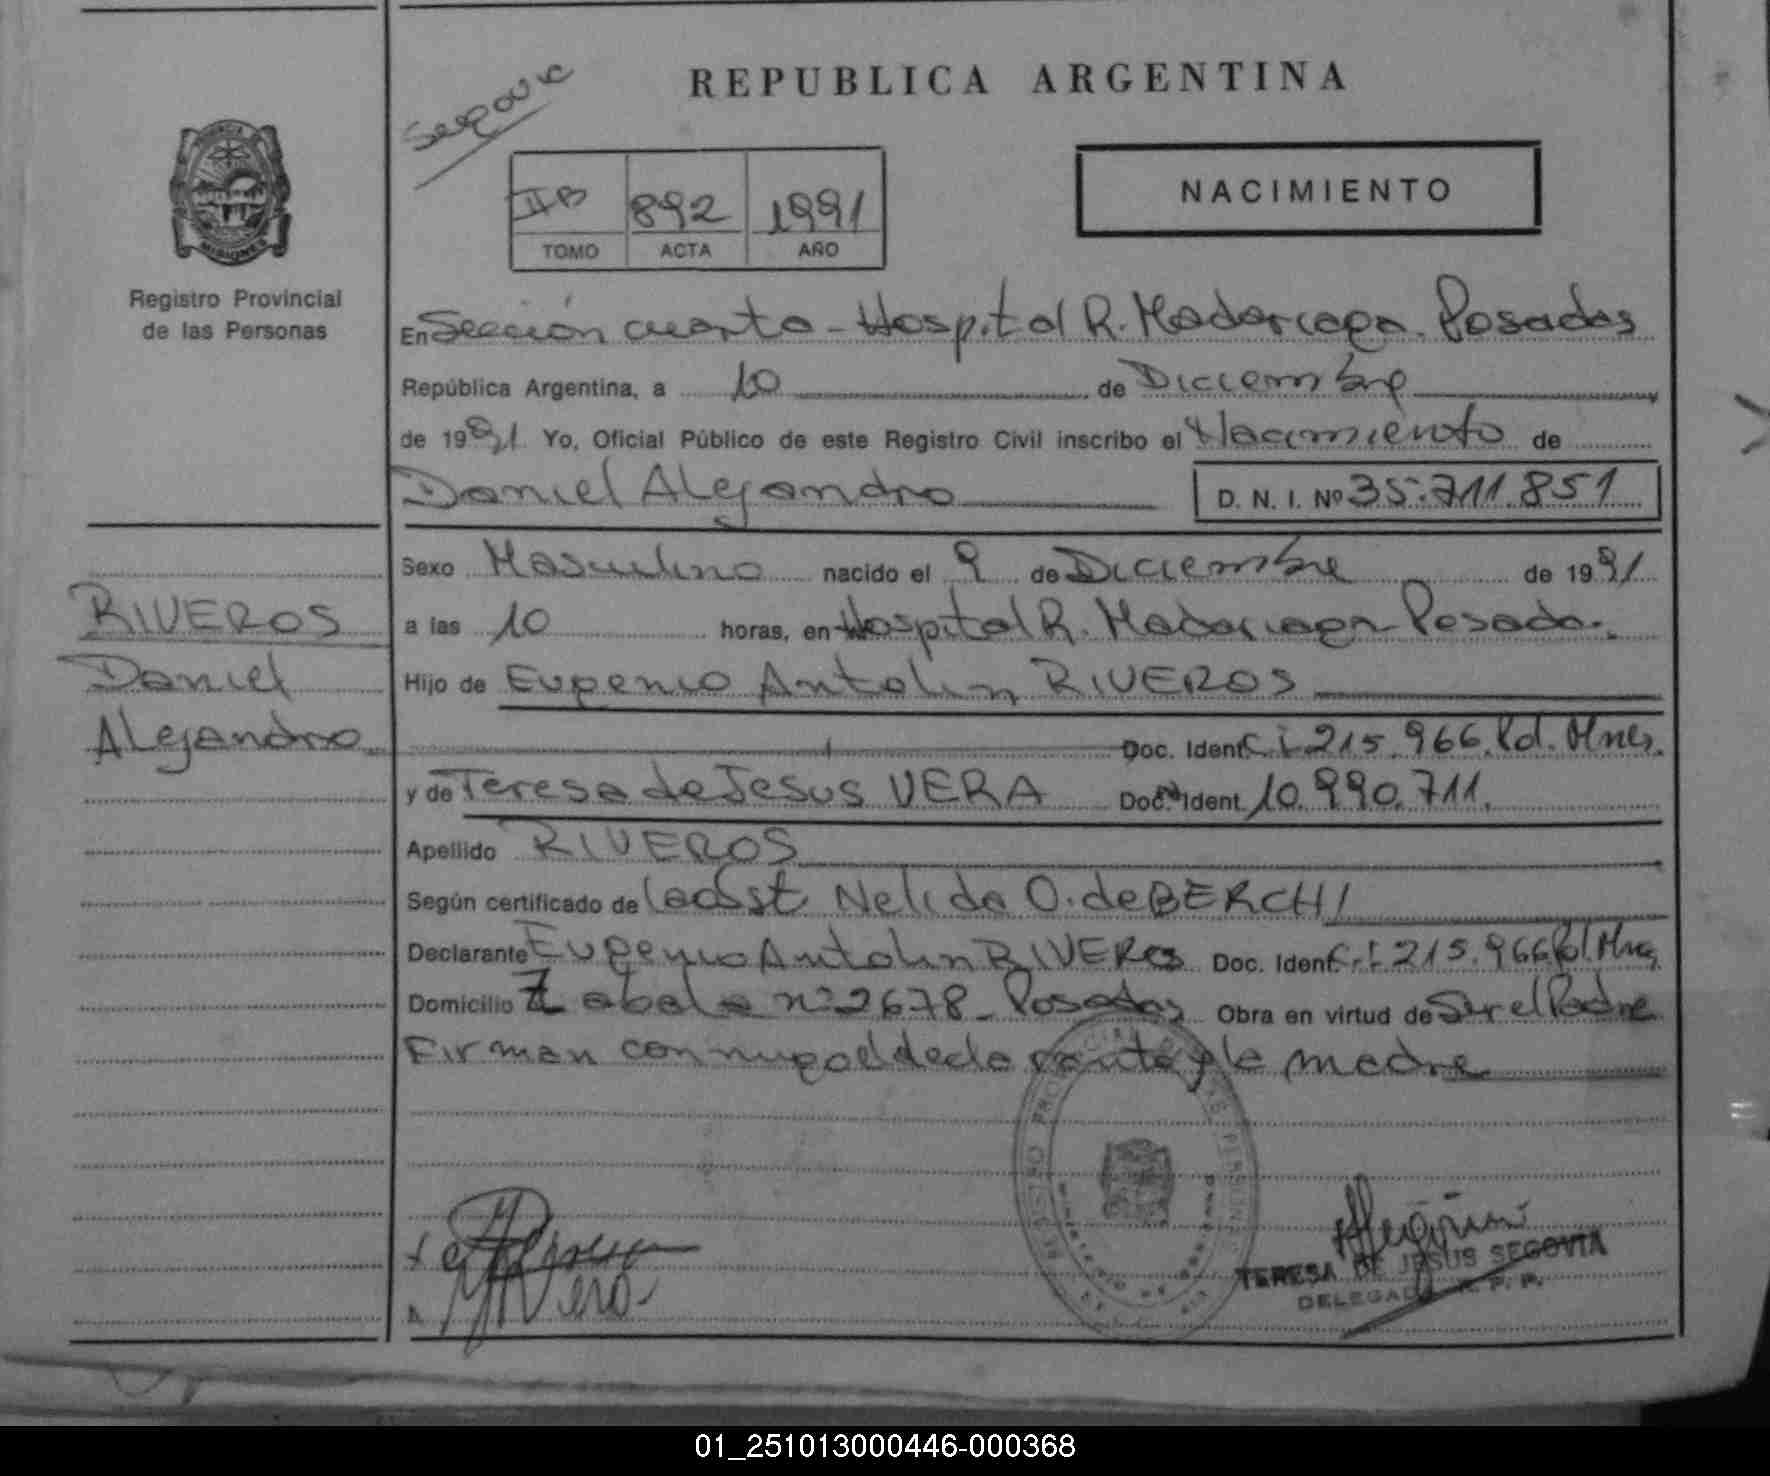 Segovia
REPUBLICA ARGENTINA
NACIMIENTO
IIB 892 1991
TOMO ACTA AÑO
MISIONES
Registro Provincial
de las Personas
En Sección cuarta - Hospital R. Madariaga. Posadas
República Argentina, a 10 de Diciembre
de 1991 Yo, Oficial Público de este Registro Civil inscribo el Nacimiento de
Daniel Alejandro D. N. I. Nº 35.711.851
Sexo Masculino nacido el 9 de Diciembre de 1991
a las 10 horas, en Hospital R. Madariaga - Posadas.
Hijo de Eugenio Antolin RIVEROS
Doc. Ident. C.I. 215.966. Pol. Mnes.
y de Teresa de Jesus VERA Doc. Ident. 10.990.711.
Apellido RIVEROS
Según certificado de la Obst Nelida O. de BERCHI
Declarante Eugenio Antolin RIVEROS Doc. Ident. C.I 215.966 Pol. Mnes
Domicilio Zabala nº 2678 - Posadas Obra en virtud de Ser el Padre
Firman conmigo el declarante y la madre
RIVEROS
Daniel
Alejandro
Vera
TERESA DE JESUS SEGOVIA
DELEGADA R. P. P.
01_251013000446-000368